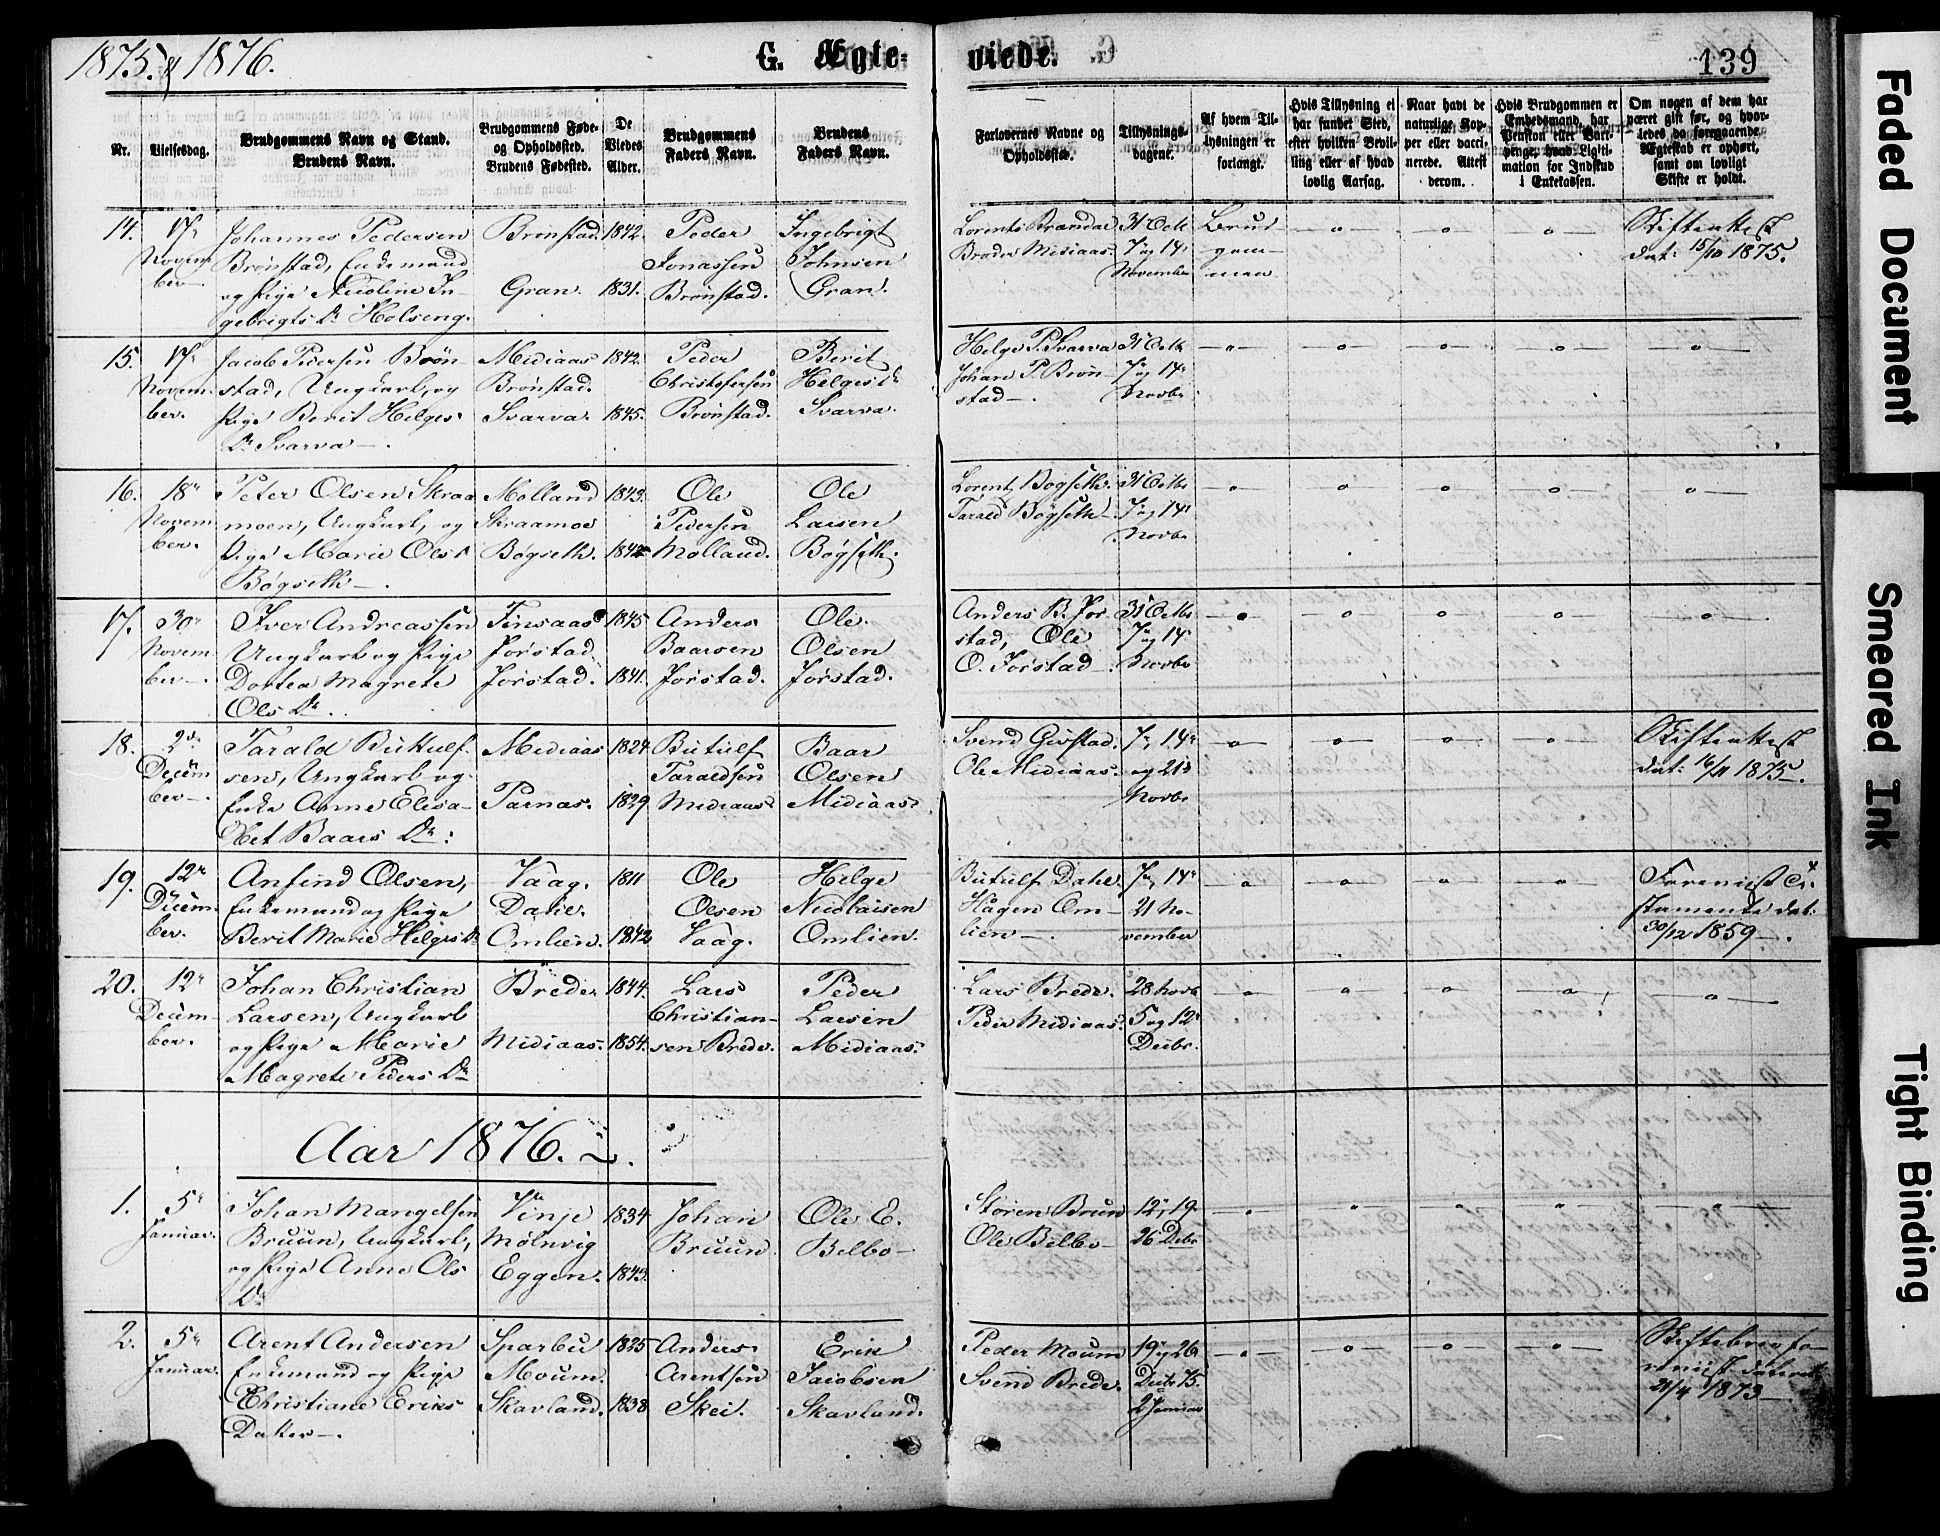 1875. & 1876.
G. Ægte-
viede.
139
Nr.
Vielsesdag.
Brudgommens Navn og Stand.
Brudens Navn.
Brudgommens Føde-
og Opholdssted.
Brudens Fødested.
De
Viedes
Alder.
Brudgommens
Faders Navn.
Brudens
Faders Navn.
Forlovernes Navne og
Opholdssted.
Tillysnings-
dagene.
Af hvem Til-
lysningen er
forlangt.
Hvis Tillysning ei
har fundet Sted,
efter hvilken Bevil-
ling eller af hvad
lovlig Aarsag.
Naar havt de
naturlige Kop-
per eller vacci-
nerede. Attest
derom.
Hvis Brudgommen er
Embedsmand, har
Pension eller Vart-
penge, hvad Legiti-
mation for Indskud
i Enkekassen.
Om nogen af dem har
været gift før, og hvor-
ledes da foregaaende
Ægteskab er ophørt,
samt om lovligt
Skifte er holdt.
14.
17de
Novem
ber
Johannes Pedersen
Brønstad, Enkemand
og Pige Nicoline In-
gebrigts Dr Holseng.
Brønstad.
Gran.
1842.
1831.
Peder
Jonassen
Brønstad.
Ingebrigt
Johnsen
Gran.
Lorents Brandal
Broder Midiaas.
31 Octb
7 og 14
November
Brud
gom-
men
Skifteattest
dat: 15/10 1875.
15.
17de
Novem-
ber.
Jacob Pedersen Brøn-
stad, Ungkarl, og
Pige Berit Helges
Dr Svarva.
Midiaas
Brønstad.
Svarva.
1842.
1845.
Peder
Christofersen
Brønstad.
Berit
Helges Dr
Svarva.
Helge P. Svarva
Johan P. Brøn-
stad
31 Octb
7 og 14
Novbr
16.
18de
Novem
ber.
Peter Olsen Skraa
moen, Ungkarl, og
Pige Marie Ols Dr
Bøgseth.
Molland
Skraamoe
Bøgseth.
1843.
1842
Ole
Pedersen
Molland.
Ole
Larsen
Bøgseth.
Lorents Bøgseth.
Tarald Bøgseth
31 Octbr
7 og 14
Novbr
17.
30te
Novem
ber
Iver Andreassen
Ungkarl og Pige
Dortea Magrete
Ols Dr.
Finsaas
Jørstad.
Jørstad.
1845
1841.
Anders
Baarsen
Jørstad.
Ole
Olsen
Jørstad.
Anders B. Jør
stad, Ole
O. Jørstad
31 Octbr
7 og 14
Novbr
18.
2den
Decem
ber
Tarald Butulf
sen, Ungkarl og
Enke Anne Elisa-
bet Baars Dr.
Midiaas
Parnas.
1824
1829
Butulf
Taraldsen
Midiaas
Baar
Olsen
Midiaas.
Svend Givstad.
Ole Midiaas.
7, 14
og 21de
Novbr
Skifteattest
dat: 16/11 1875.
19.
12te
Decem
ber.
Anfind Olsen,
Enkemand og Pige
Berit Marie Helges Dr
Vaag.
Dahl.
Omlien.
1811
1842
Ole
Olsen
Vaag.
Helge
Nicolaisen
Omlien.
Butulf Dahl.
Hågen Om-
lien
7, 14
21 No-
vember
Foreviist Te-
stamente dat:
30/12 1859.
20.
12te
Decem-
ber.
Johan Christian
Larsen, Ungkarl
og Pige Marie
Magrete Peders Dr
Brede.
Midiaas.
1844.
1854.
Lars
Christian-
sen Brede.
Peder
Larsen
Midiaas.
Lars Brede.
Peder Midiaas.
28 Novb
5 og 12
Decbr.
Aar 1876.
1.
5te
Januar.
Johan Mangelsen
Bruun, Ungkarl,
og Pige Anne Ols
Dr
Vinje
Mølnvig
Eggen.
1834
1843.
Johan
Bruun
Ole E.
Belbo
Støren Bruun
Ole Belbo
12, 19
26 Debr
2.
5te
Januar.
Arent Andersen
Enkemand og Pige
Christiane Eriks
Datter.
Sparbu
Moum.
Skavland.
1825
1838
Anders
Arentsen
Skei.
Erik
Jacobsen
Skavland.
Peder Moum
Svend Brede.
19 og 26
Decbr 75.
2 Januar
Skiftebrev fo-
reviist dateret
21/4 1873
Faded Document
Smeared Ink
Tight Binding